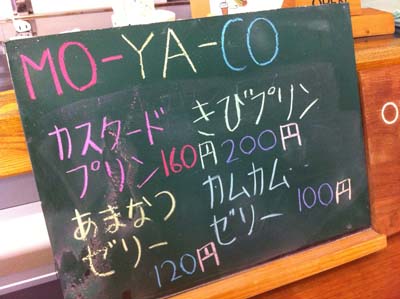 MO-YA-CO
カスタード
プリン160円
きびプリン
200円
あまなつ
ゼリー
120円
カムカム
ゼリー 100円